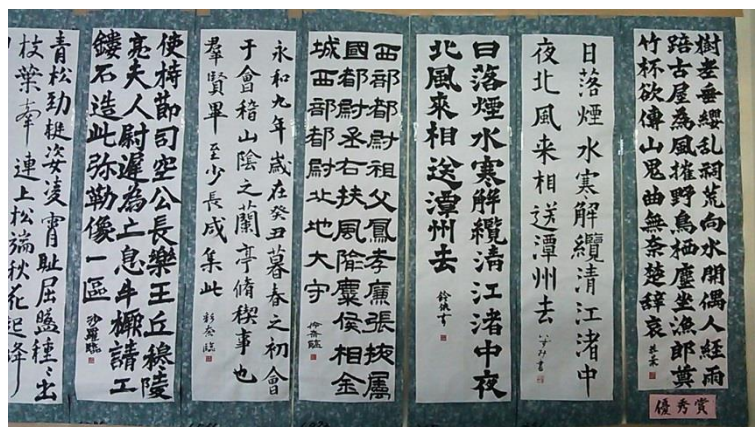 樹老垂纓乱祠荒向水開偶人経雨
踣古屋為風摧野鳥栖塵坐漁郎奠
竹杯欲傳山鬼曲無奈楚辞哀
優秀賞
日落煙水寒解纜清江渚中
夜北風来相送潭州去
日落煙水寒解纜清江渚中夜
北風來相送潭州去
西部都尉祖父鳳孝廉張掖屬
國都尉丞右扶風隃麋侯相金
城西部都尉北地大守
永和九年歳在癸丑暮春之初會
于會稽山陰之蘭亭脩稧事也
羣賢畢至少長咸集此
使持節司空公長樂王丘穆陵
亮夫人尉遅為亡息牛橛請工
鏤石造此弥勒像一區
沙羅臨
青松勁挺姿凌霄恥屈盤種種出
枝葉牽連上松端秋花起絳